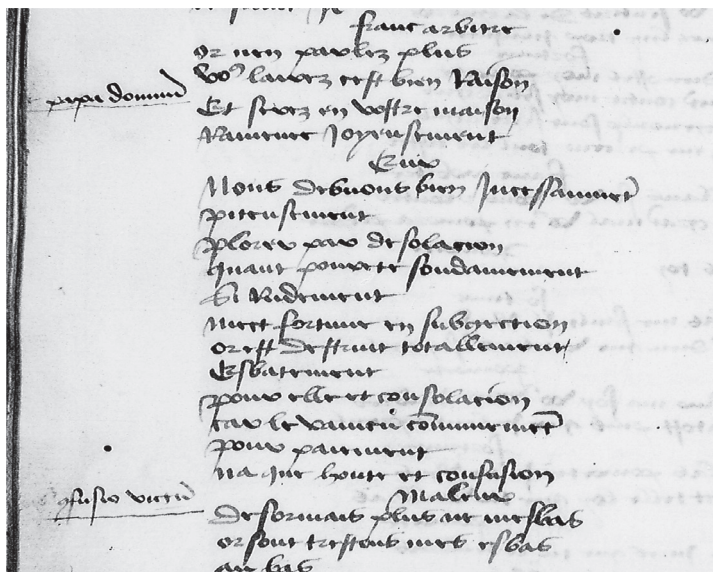 franc arbitre
Or nen parlez plus
Vo⁹ lavez cest bien Raison
papa domin
Et serez en vostre maison
Ramenee Joyeusement
Eur
Nous debvons bien Incessammet
piteusement
plorer par desolacion
quant povrete soudainement
Si Ridement
met fortune en subgection
or est destruit totallement
Esbatement
pour elle et consolacion
car le vaincu communemet
pour paiement
na que honte et confusion
Maleur
desormais plus ne meslas
or sont trestous mes esbas
au bas